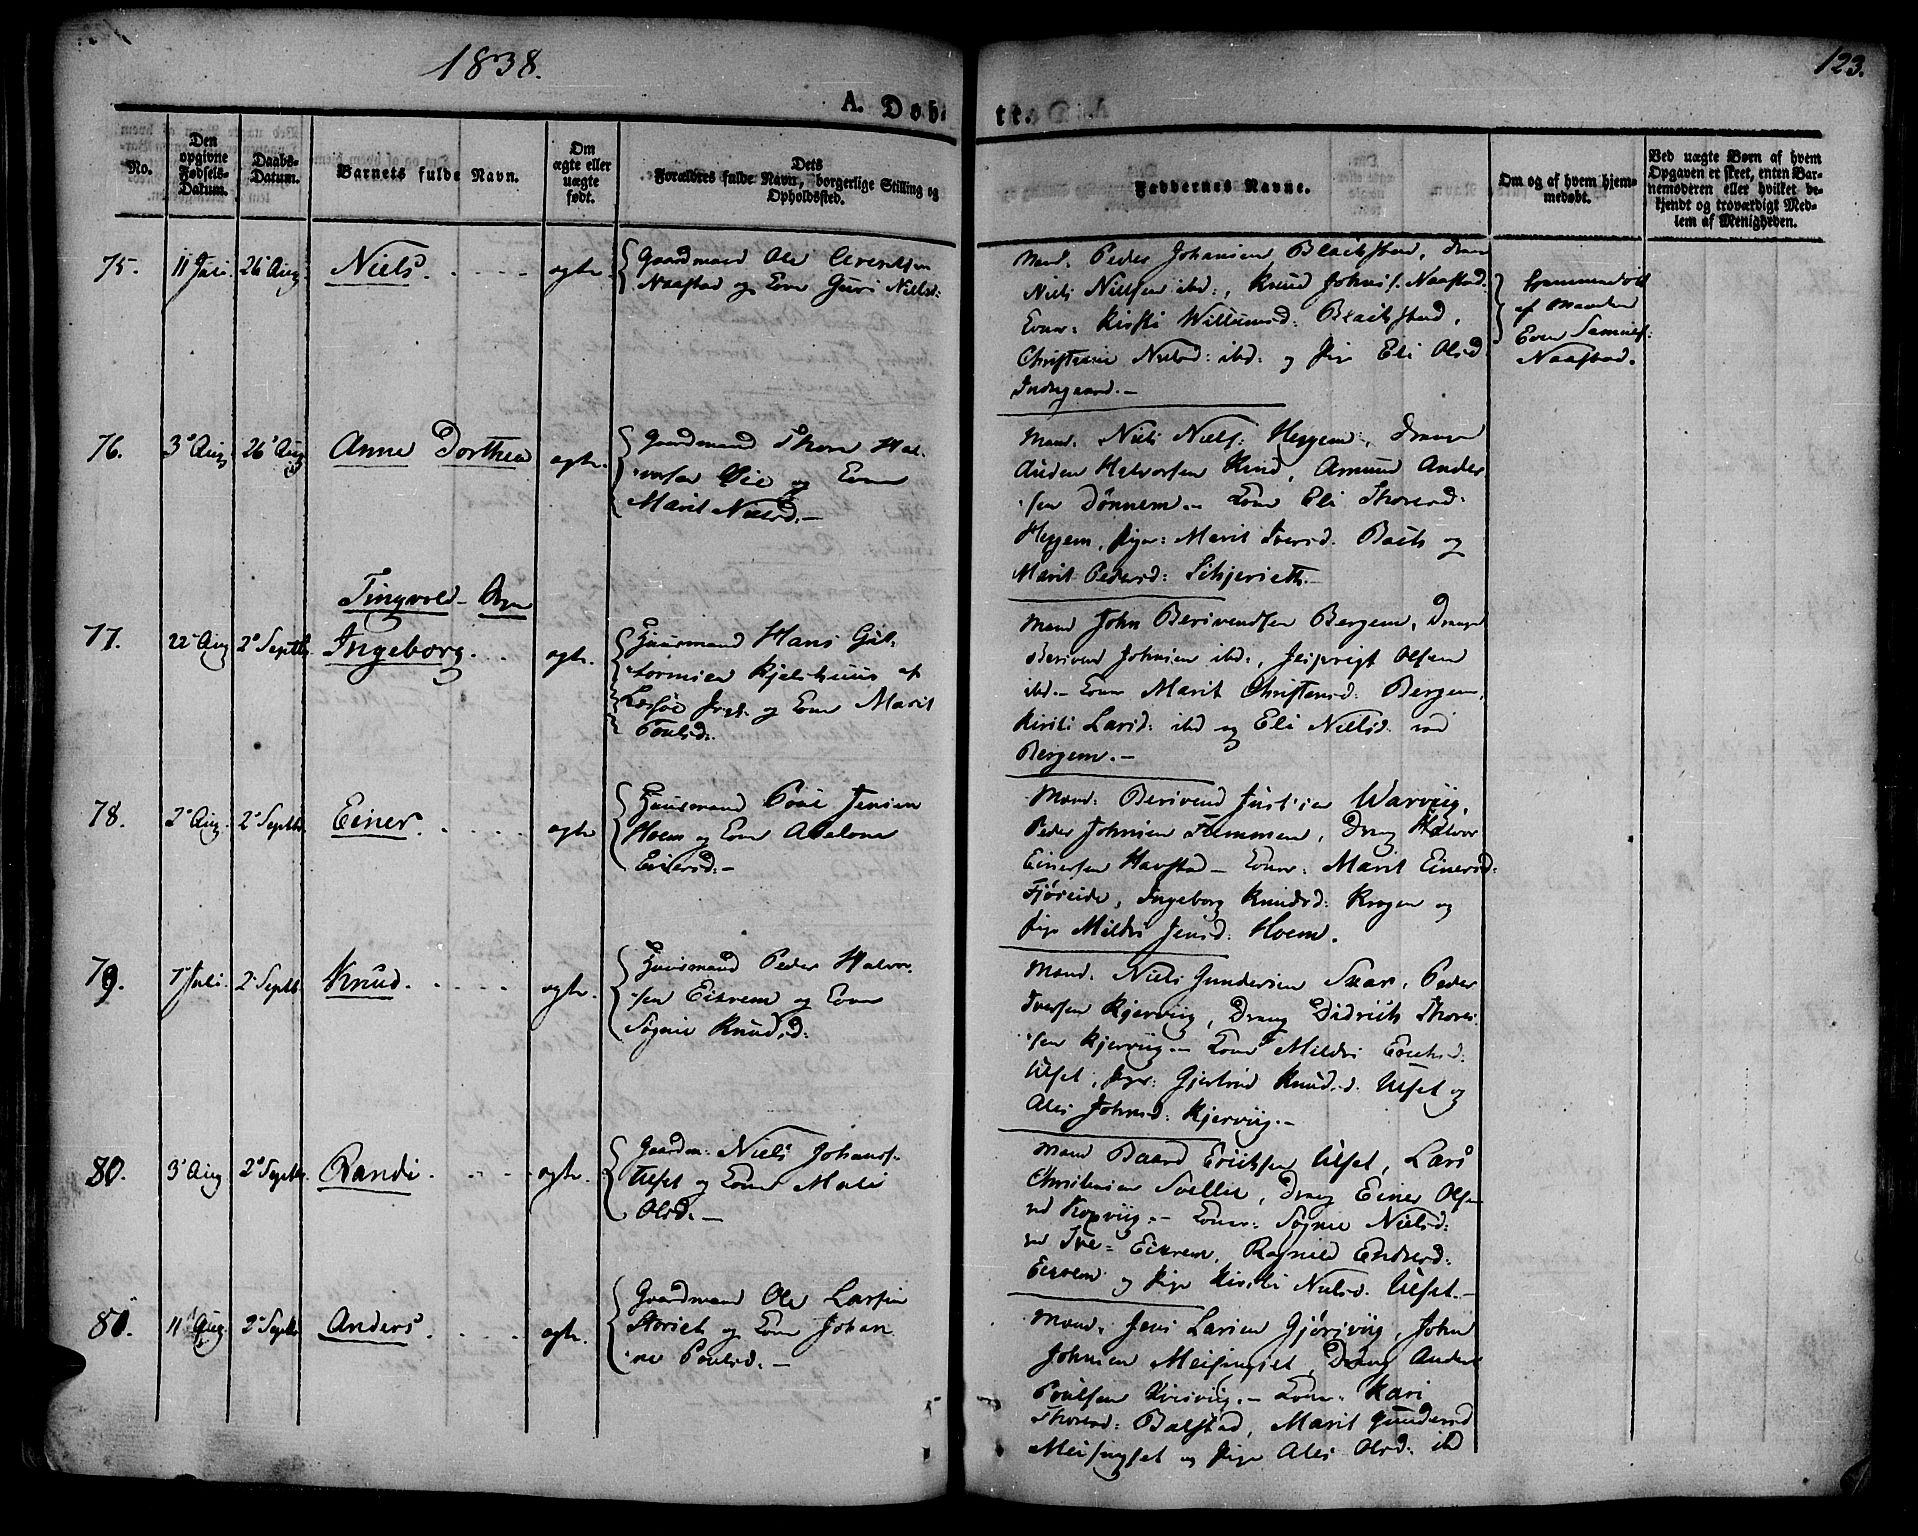 1838.
123.
A. Døb-
te.
No.
Den opgivne Fødsels-Datum.
Daabs-Datum.
Barnets fulde Navn.
Om ægte eller uægte født.
Dets Forældres fulde Navn, borgerlige Stilling og Opholdssted.
Faddernes Navne.
Om og af hvem hjem-medøbt.
Ved uægte Børn af hvem Opgaven er skeet, enten Bar-nemoderen eller hvilket be-kjendt og troværdigt Med-lem af Menigheden.
75. 11 Juli 26 Aug Niels. ægte.
Gaardmand Ole
Naastad og Kone Guri Nielsd:
Mænd: Peder Johansen Blaikstad, Dreng
Niels Nielsen ibd:, Knud Johns. Naastad.
Koner: Kirsti Willumsd: Blaikstad,
Christense Nielsd: ibd: og Pige Eli Olsd
Indergaard.-
Hjemmedøbt
af Manden
Even Samuels:
Naastad.
76. 3 Aug 26 Aug Anne Dorthea ægte.
Gaardmand Thore Hal-
vorsen Øie og Kone
Marit Nielsd.-
Mænd: Niels Niels: Heggem, Dreng
Auden Halvorsen Kind, Amund Ander
sen Dønnem.- Kone Eli Thoresd:
Heggem, Piger: Marit Iversd. Bach og
Marit Pedersd:
Tingvold
77. 22 Aug 2 Septb. Ingeborg. ægte.
Huusmand Hans Gut-
tormsen Kjelshuus af
og Kone Marit
Poulsd:
Mænd John Berivendsen Bergem, Dreng
Berivend Johnsen ibd:, Olsen
ibd.- Kone Marit Christensd: Bergem,
Kirsti Larsd: ibd og Eli Nielsd.
Bergem.-
78. 2 Aug 2 Septb. Einer. ægte
Huusmand Poul Jensen
Hoem og Kone
Einersd:-
Mænd: Berivend Warviig,
Peder Johnsen Flemmen, Dreng Halvor
Einersen Havstad - Koner: Marit Einersd:
Fjøseide, Ingeborg Knudsd: Krogen og
Pige Mildri Jensd: Hoem.
79. 7 Juli. 2 Septb. Knud. ægte.
Huusmand Peder Halvor-
sen Eikrem og Kone
Sygnie Knudsd:
Mænd: Niels Gundersen Skar, Peder
Iversen Kjørviig, Dreng Didrich Thores-
sen Kjørviig - Kone Mildri Erichsd:
Ulset, Piger: Gjertrud Knudsd: Ulset og
Ales Johnsd: Kjørviig.-
80. 3 Aug 2 Septb. Randi. ægte.
Gaardm: Niels Johans-
Ulset og Kone Mali
Olsd.-
Mænd Baard Erichsen Ulset, Lars
Christensen Svellet, Dreng Einer Olsen
Kopviig.- Koner: Sygnie Nielsd:
Eikrem, Ragnild Endresd:
Eikrem og Pige Kirsti Nielsd. Ulset.-
81. 11 Aug. 2 Septb. Anders. ægte.
Gaardmand Ole Larsen
Storvik og Kone Johan
ne Poulsd.-
Mænd: Jens Larsen Gjørsviig, John
Johnsen Meisingset, Dreng Anders
Poulsen - Kone: Kari
Thoresd: Balstad, Marit Gundersd
Meisingset og Pige Ales Olsd: ibd